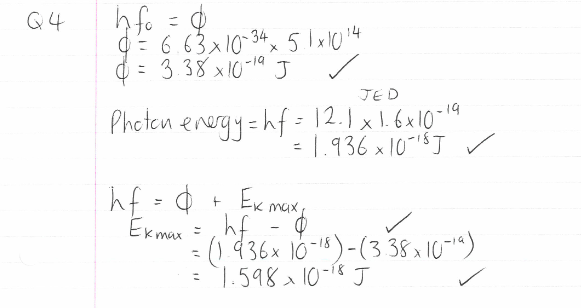 Q4 hf₀ = ϕ
ϕ = 6.63×10⁻³⁴ × 5.1×10¹⁴
ϕ = 3.38×10⁻¹⁹ J ✓
JED
Photon energy = hf = 12.1 × 1.6×10⁻¹⁹
= 1.936×10⁻¹⁸ J ✓
hf = ϕ + Eₖ max
Eₖ max = hf - ϕ ✓
= (1.936×10⁻¹⁸)-(3.38×10⁻¹⁹)
= 1.598×10⁻¹⁸ J ✓